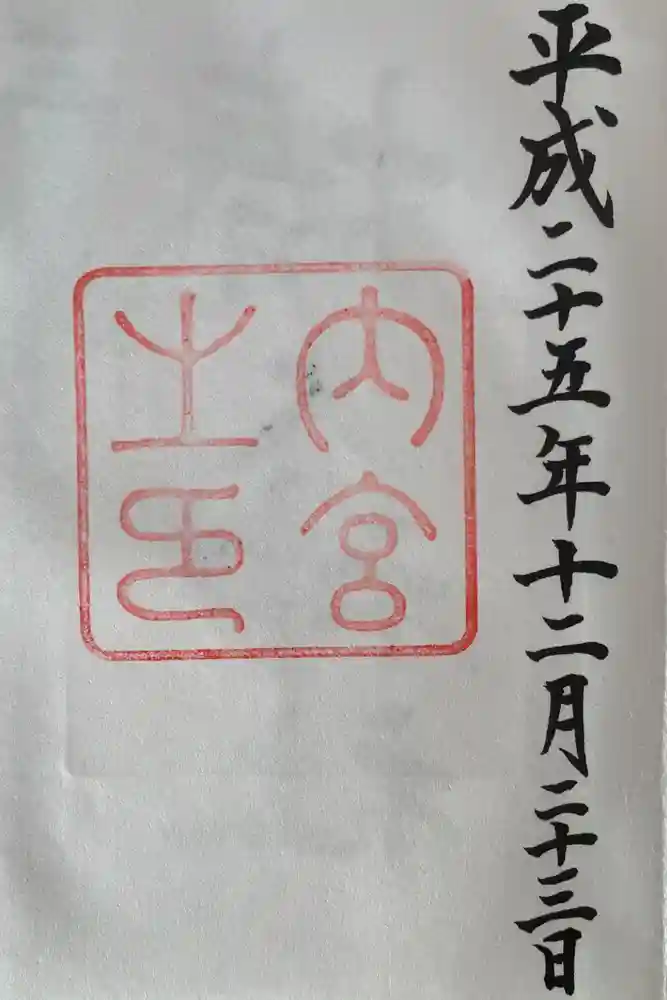 平成二十五年十二月二十三日
内宮
之印